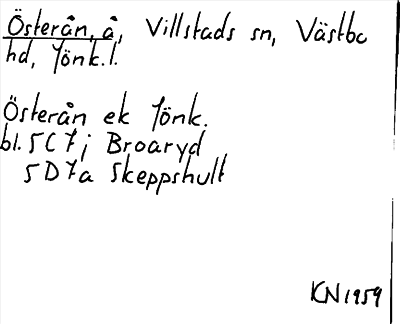 Österån, å, Villstads sn, Västbo
hd, Jönk.l.
Österån ek Jönk.
bl. 5C7j Broaryd
5D7a Skeppshult
KN 1959